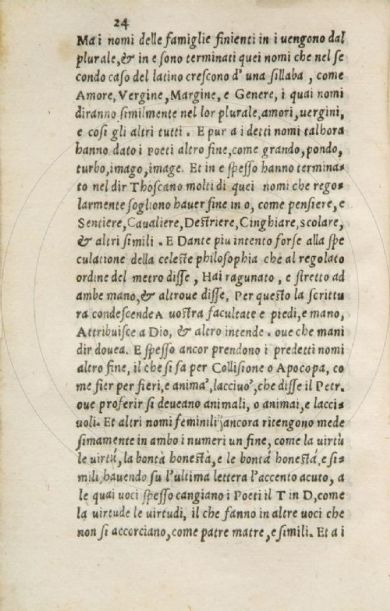 24
Ma i nomi delle famiglie finienti in i vengono dal
plurale, & in e sono terminati quei nomi che nel se
condo caso del latino crescono d'una sillaba, come
Amore, Vergine, Margine, e Genere, i quai nomi
diranno similmente nel lor plurale, amori, vergini,
e cosi gli altri tutti. E pur a i detti nomi talhora
hanno dato i Poeti altro fine, come grando, pondo,
turbo, imago, image. Et in e spesso hanno termina=
to nel dir Thoscano molti di quei nomi che rego=
larmente sogliono haver fine in o, come pensiere, e
Sentiere, Cavaliere, Destriere, Cinghiare, scolare,
& altri simili. E Dante piu intento forse alla spe
culatione della celeste philosophia che al regolato
ordine del metro disse, Hai ragunato, e stretto ad
ambe mano, & altrove disse, Per questo la scrittu
ra condescende A vostra facultate e piedi, e mano,
Attribuisce a Dio, & altro intende. ove che mani
dir dovea. E spesso ancor prendono i predetti nomi
altro fine, il che si fa per Collisione o Apocopa, co
me fier per fieri, e anima', lacciuo', che disse il Petr.
ove proferir si deveano animali, o animai, e lacci=
voli. Et altri nomi feminili ancora ritengono mede
simamente in ambo i numeri un fine, come la virtù
le virtú, la bontà honestà, e le bontá honestá, e si=
mili, havendo su l'ultima lettera l'accento acuto, a
le quai voci spesso cangiano i Poeti il T in D, come
la virtude le virtudi, il che fanno in altre voci che
non si accorciano, come patre matre, e simili. Et a i